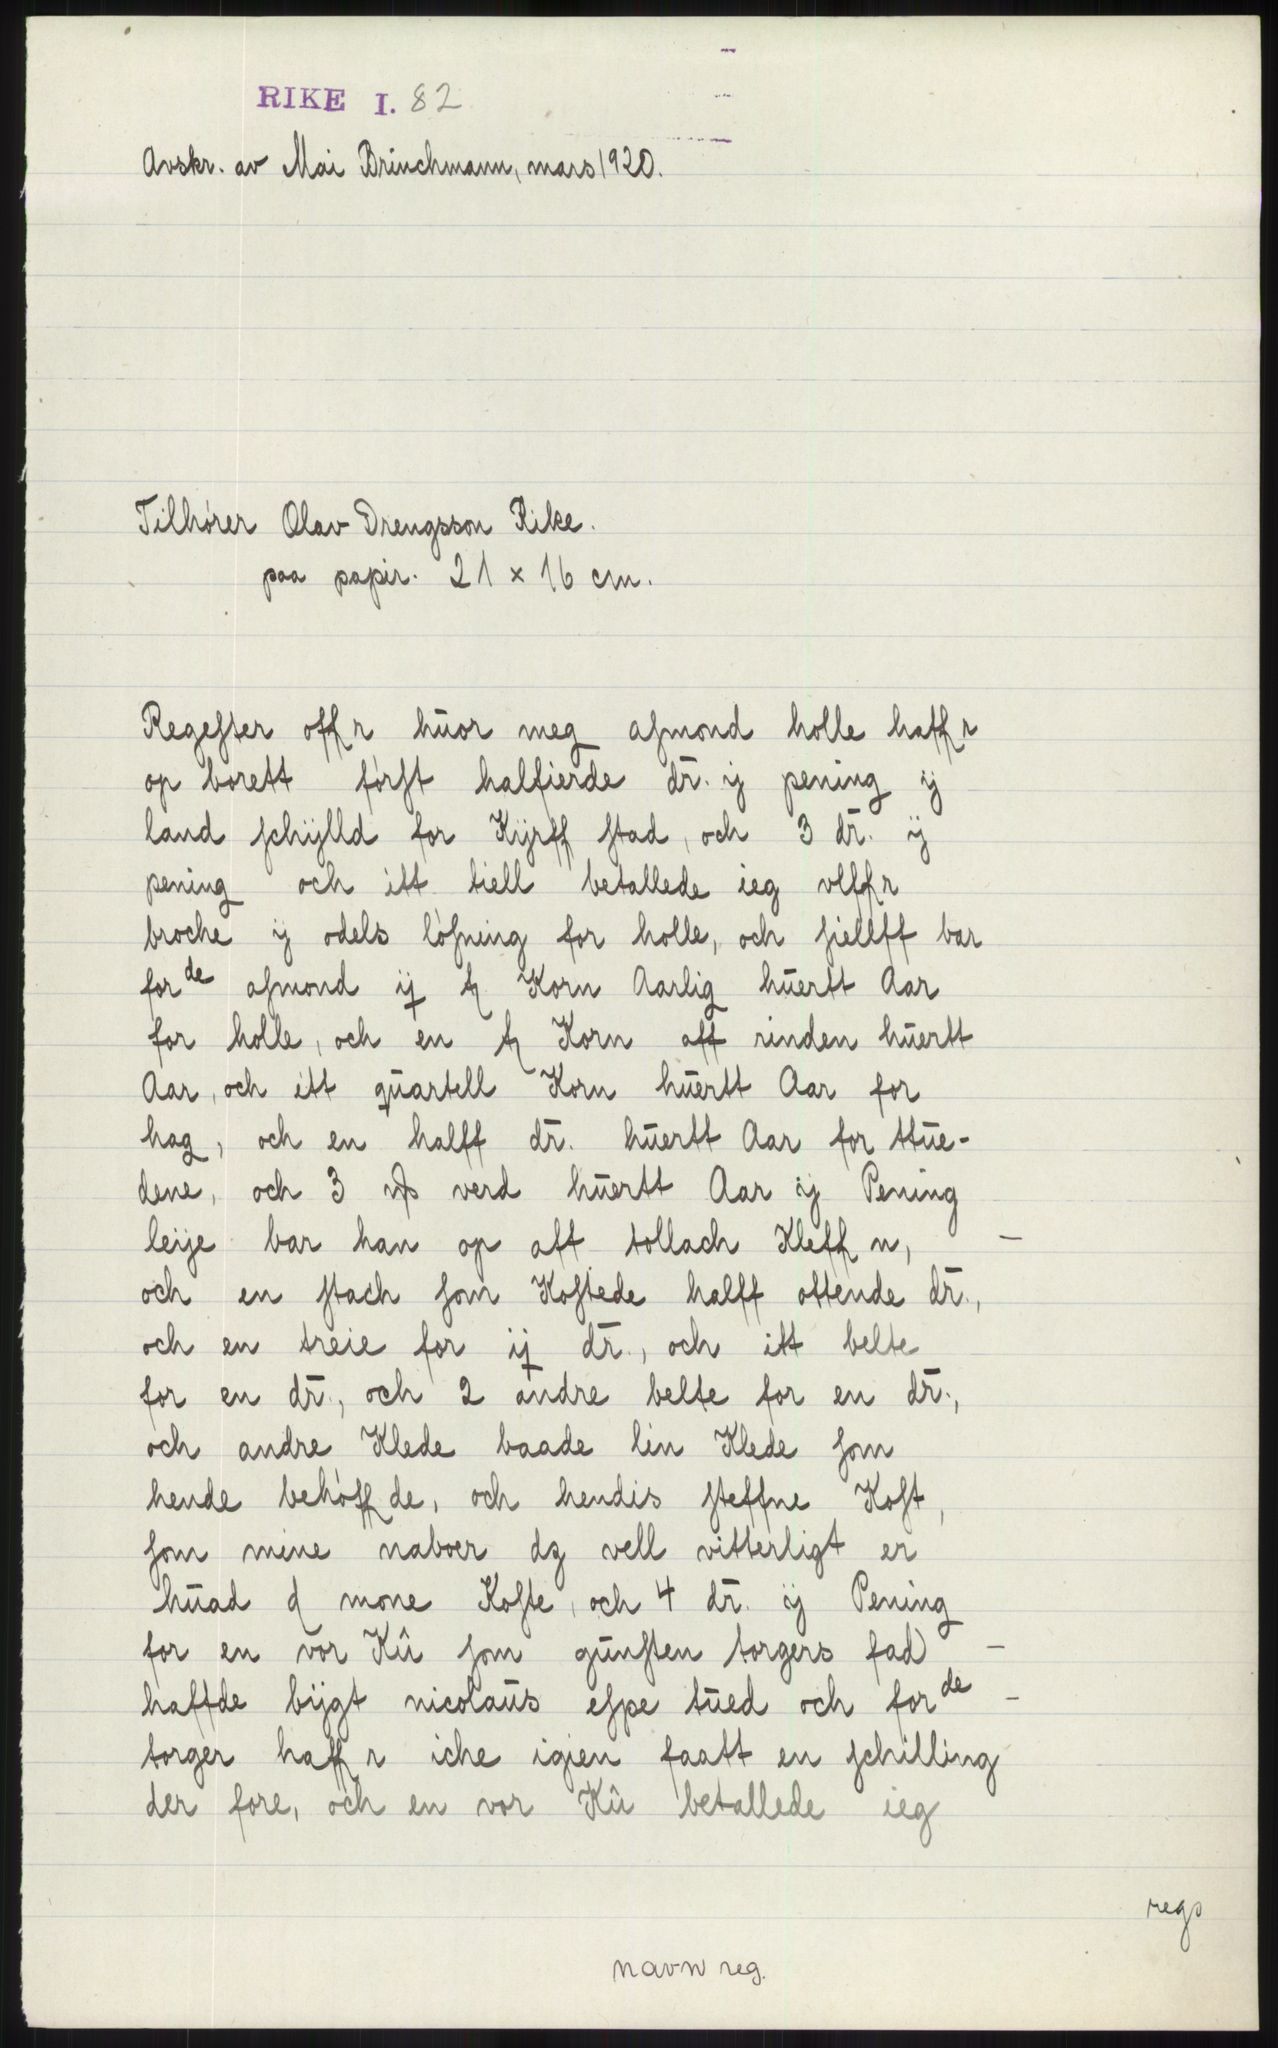 RIKE I. 82
Avskr. av Mai Brinchmann, mars 1920.
Tilhører Olav Drengsson Rike.
paa papir. 21 × 16 cm.
Regeſter offr huor meg aſmond holle haffr
op borett förſt halfierde dr. ij pening ÿ
land ſchÿlld for Kÿrff ſtad, och 3 dr. ÿ
pening och itt tiell betallede ieg vlffr
broche ÿ odels löſning for holle, och ſiellff bar
forde aſmond ij Korn Aarlig huertt Aar
for holle, och en Korn aff rinden huertt
Aar, och itt quartell Korn huertt Aar for
hag, och en halff dr. huertt Aar for ttue-
dene, och 3 verd huertt Aar ÿ Pening
leÿe bar han op aff tollach Kleffn, –
och en ſtach ſom Koſtede halff ottende dr.,
och en treie for ij dr., och itt belte
for en dr., och 2 andre belte for en dr.,
och andre Klede baade lin Klede ſom
hende behöffde, och hendis ſteffne Koſt,
ſom mine naboer dz vell vitterligt er
huad d mone Koſte, och 4 dr. ÿ Pening
for en vor Kû ſom gunſten torgers fad –
haffde bÿgt nicolaus eſpe tued och forde –
torger haffr iche igien faatt en ſchilling
der fore, och en vor Kû betallede ieg
regs
navn reg.